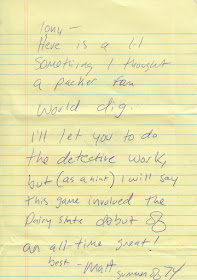 Tony -
Here is a lil
something I thought
a packer fan
would dig.
I'll let you to do
the detective work,
but (as a hint) I will say
this game involved the
Dairy State debut of
an all-time great!
best - Matt
summer of 74